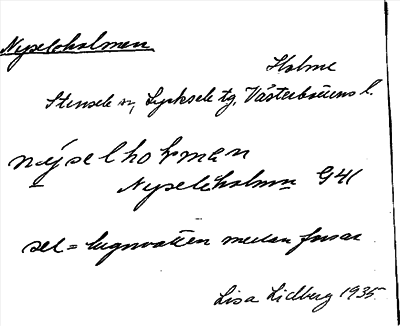 Nyseleholmen
Holme
Stensele sn, Lycksele tg, Västerbottens l.
nýselhoḷmen
Nyseleholmen G41
sel = lugnvatten mellan forsar
Lisa Lidberg 1935